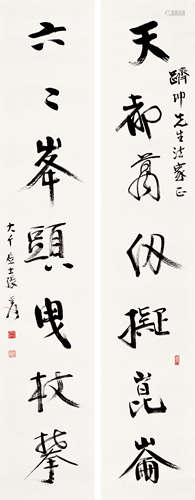 天都萬仭擬崑崙
躋卿先生法家正
六〻峯頭曳杖攀
大千居士張爰